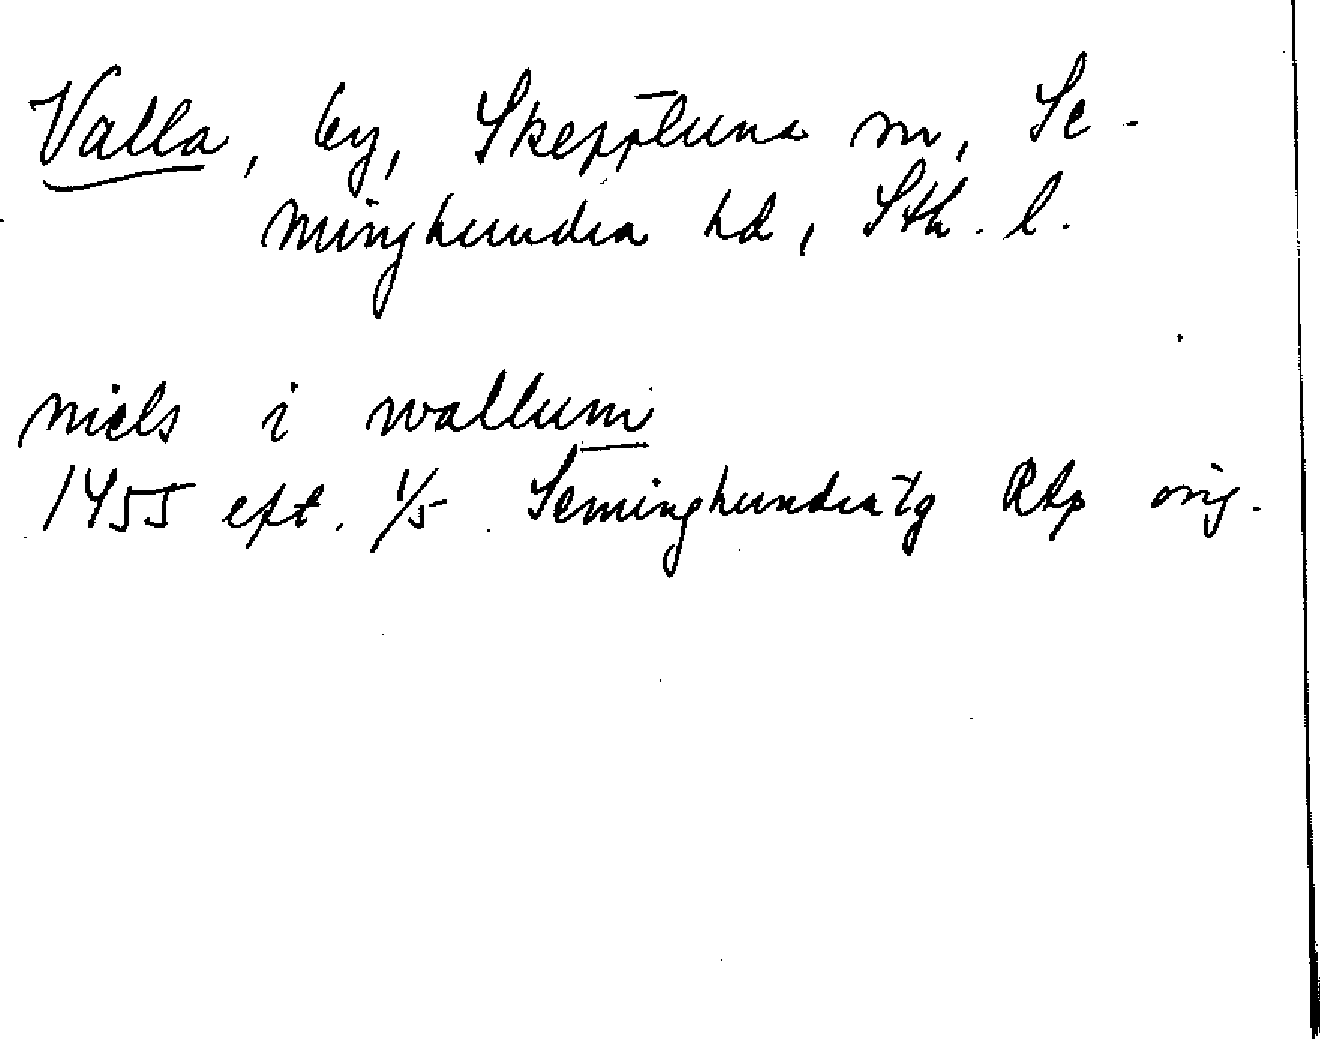 Valla, by, Skepptuna sn, Se-
minghundra hd, Sth. l.
niels i wallum
1455 eft. 1/5 Seminghundratg RAp orig.